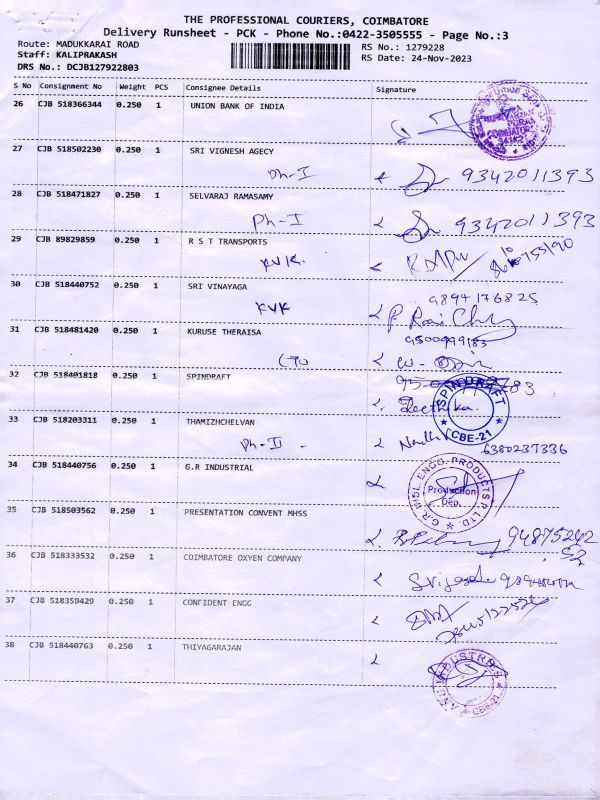 THE PROFESSIONAL COURIERS, COIMBATORE
Delivery Runsheet - PCK - Phone No.:0422-3505555 - Page No.:3
Route: MADUKKARAI ROAD
RS No.: 1279228
Staff: KALIPRAKASH
RS Date: 24-Nov-2023
DRS No.: DCJB127922803
S No Consignment No Weight PCS Consignee Details Signature
26 CJB 518366344 0.250 1 UNION BANK OF INDIA
27 CJB 518502230 0.250 1 SRI VIGNESH AGECY
Ph-I 9342011393
28 CJB 518471827 0.250 1 SELVARAJ RAMASAMY
Ph-I 9342011393
29 CJB 89829859 0.250 1 R S T TRANSPORTS
KVK.
30 CJB 518440752 0.250 1 SRI VINAYAGA
9894176825
KVK
31 CJB 518481420 0.250 1 KURUSE THERAISA
9500999183
32 CJB 518401818 0.250 1 SPINDRAFT
SPINDRAFT
CBE-21
33 CJB 518203311 0.250 1 THAMIZHCHELVAN
Ph-II 6380237336
34 CJB 518440756 0.250 1 G.R INDUSTRIAL
Production
Dep.
35 CJB 518503562 0.250 1 PRESENTATION CONVENT MHSS
94875242
52
36 CJB 518333532 0.250 1 COIMBATORE OXYEN COMPANY
37 CJB 518359429 0.250 1 CONFIDENT ENGG
38 CJB 518440763 0.250 1 THIYAGARAJAN